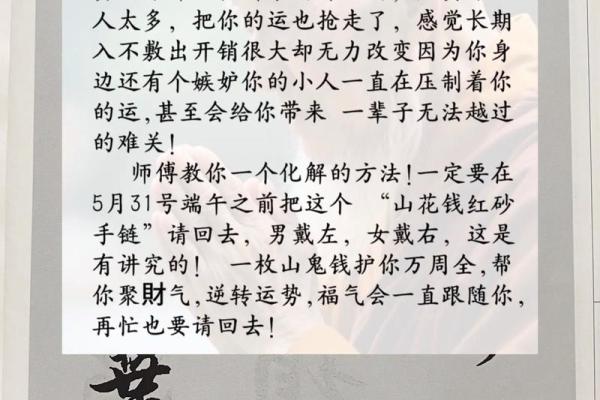 人太多，把你的运也抢走了，感觉长期
入不敷出开销很大却无力改变因为你身
边还有个嫉妒你的小人一直在压制着你
的运,甚至会给你带来 一辈子无法越过
的难关!
师傅教你一个化解的方法!一定要在
5月31号端午之前把这个 “山花钱红砂
手链”请回去，男戴左，女戴右，这是
有讲究的! 一枚山鬼钱护你万周全,帮
你聚財气,逆转运势,福气会一直跟随你,
再忙也要请回去!